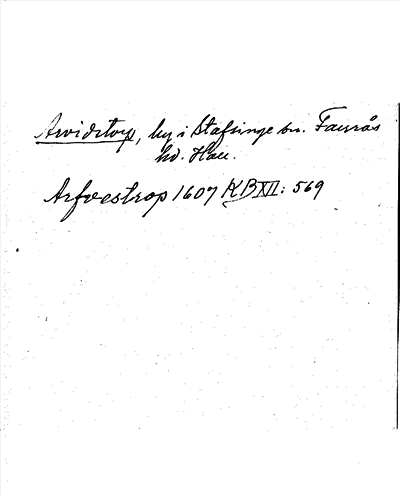 Arvidstorp, by i Stafsinge sn. Faurås
hd. Hall.
Arfvestrop 1607 KB XII: 569